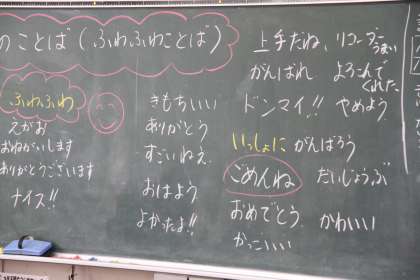 のことば(ふわふわことば)
ふわふわ
えがお
おねがいします
ありがとうございます
ナイス!!
きもちいい
ありがとう
すごいねぇ
おはよう
よかったよ!!
上手だね、リコーダー
うまい
がんばれ よろこんで
くれた
ドンマイ!! やめよう
いっしょに がんばろう
ごめんね だいじょうぶ
おめでとう かわいい
かっこいい